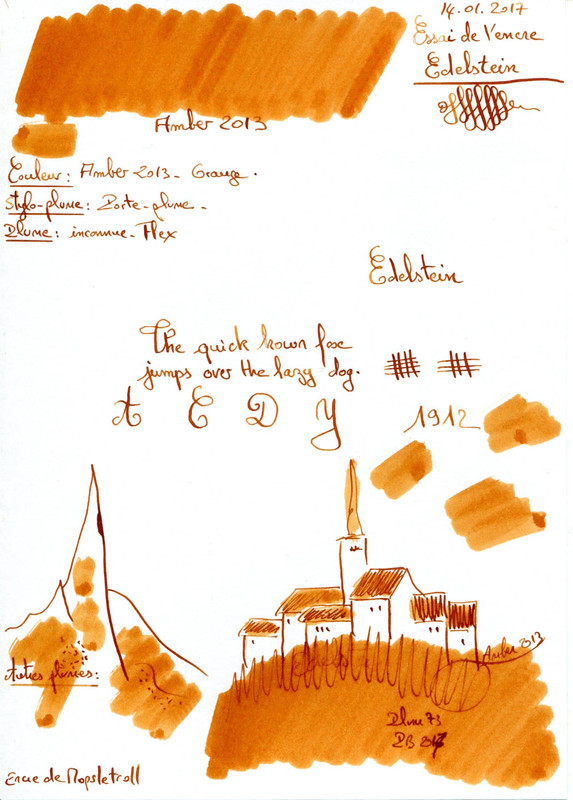 14.01.2017
Essai de l'encre
Edelstein
Amber 2013
Couleur : Amber 2013 - Orange.
Stylo-plume : Porte-plume -
Plume : inconnue - Flex
Edelstein
The quick brown fox
jumps over the lazy dog.
A E D Y 1912
Autres plumes :
Amber 2013
Plume 73
PB 2017
Encre de Mopsletroll